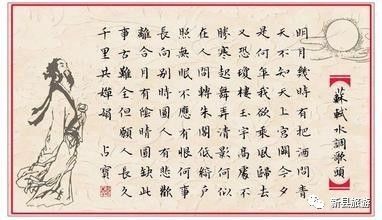 【蘇軾水調歌頭】
明月幾時有把酒問青
天不知天上宮闕今夕
是何年我欲乘風歸去
又恐瓊樓玉宇高處不
勝寒起舞弄清影何似
在人間轉朱閣低綺戶
照無眠不應有恨何事
長向別時圓人有悲歡
離合月有陰晴圓缺此
事古難全但願人長久
千里共嬋娟 占寶
新县旅游